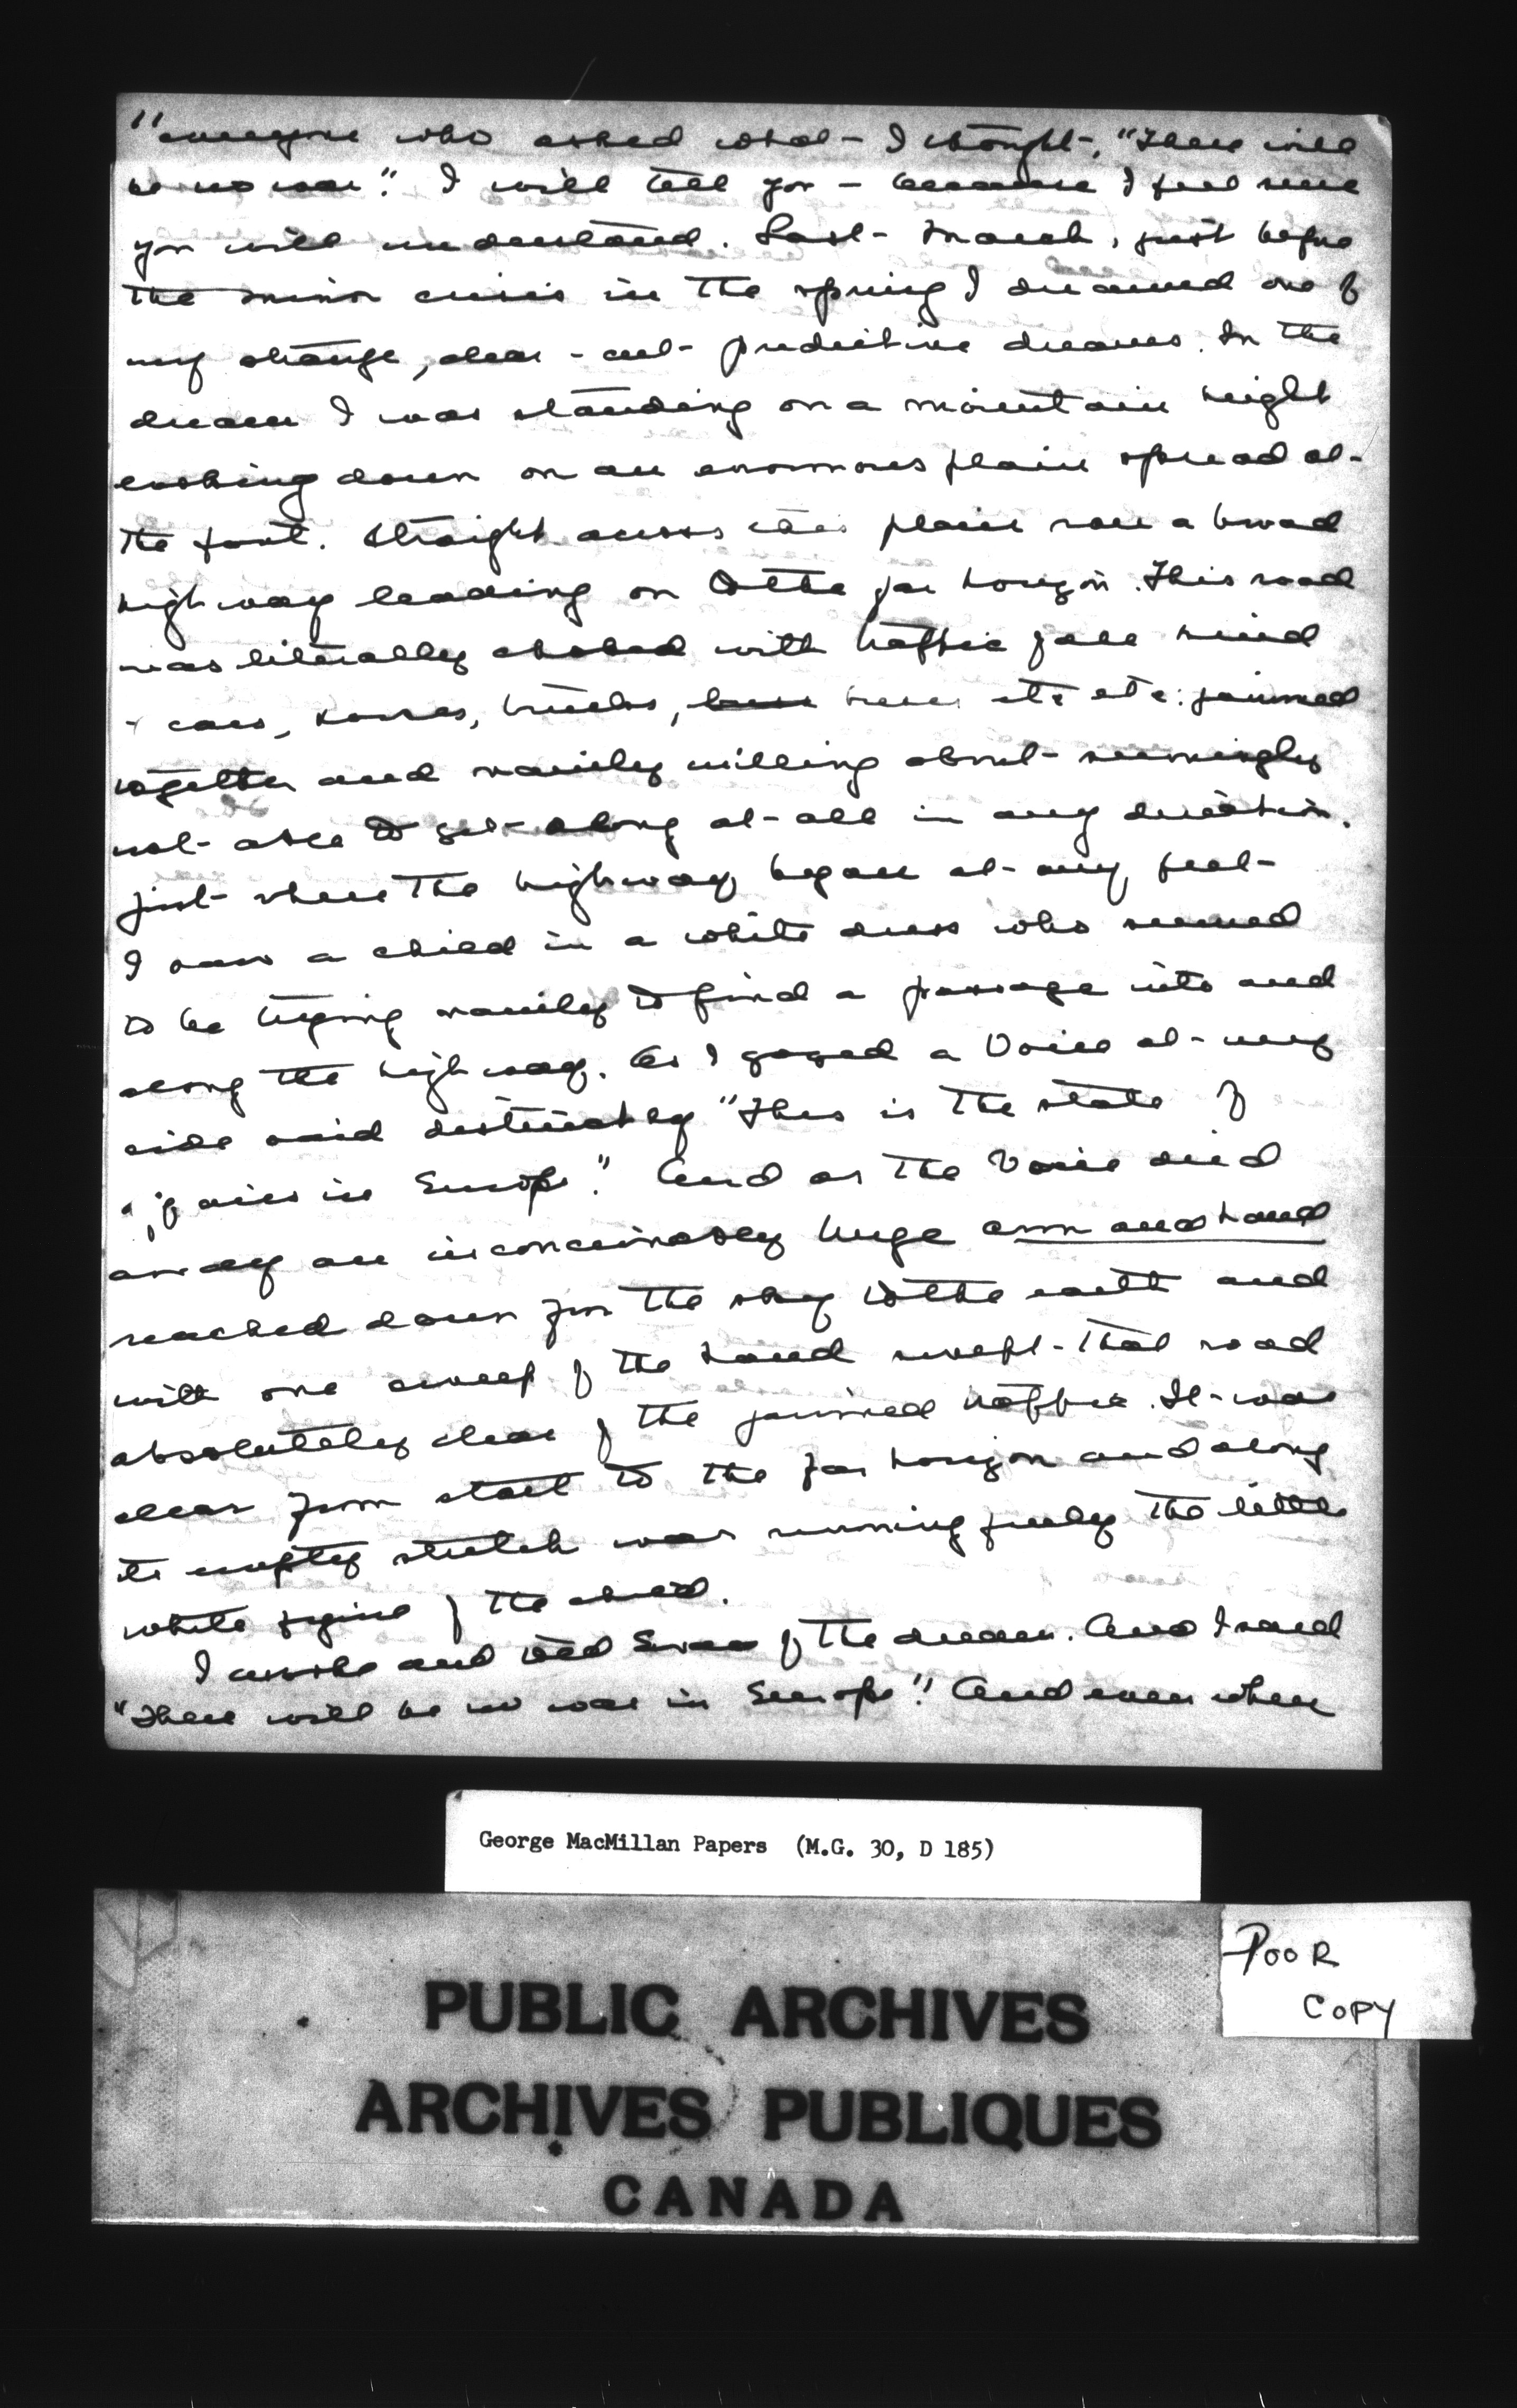 "everyone who asked what I thought, "There will
be no war." I will tell you – because I feel sure
you will understand. Last March, just before
the minor crisis in the spring I dreamed one of
my strange, clear-cut predictive dreams. In the
dream I was standing on a mountain height
looking down on an enormous plain spread at
the foot. Straight across this plain ran a broad
highway leading on to the far horizon. This road
was literally choked with traffic of all kind
- cars, horses, trucks, etc etc. jammed
together and vainly milling about seemingly
not able to get along at all in any direction.
Just where the highway began at my feet
I saw a child in a white dress who seemed
to be trying vainly to find a passage into and
along the highway. As I gazed a Voice at my
side said distinctly "This is the state of
affairs in Europe." And as the Voice died
away an inconceivably huge arm and hand
reached down from the sky to the earth and
with one sweep of the hand swept that road
absolutely clear of the jammed traffic. It was
clear from start to the far horizon and along
its empty stretch was running freely the little
white figure of the child.
I awoke and told Ewan of the dream. And I said
"There will be no war in Europe". And even when
George MacMillan Papers (M.G. 30, D 185)
POOR
COPY
PUBLIC ARCHIVES
ARCHIVES PUBLIQUES
CANADA